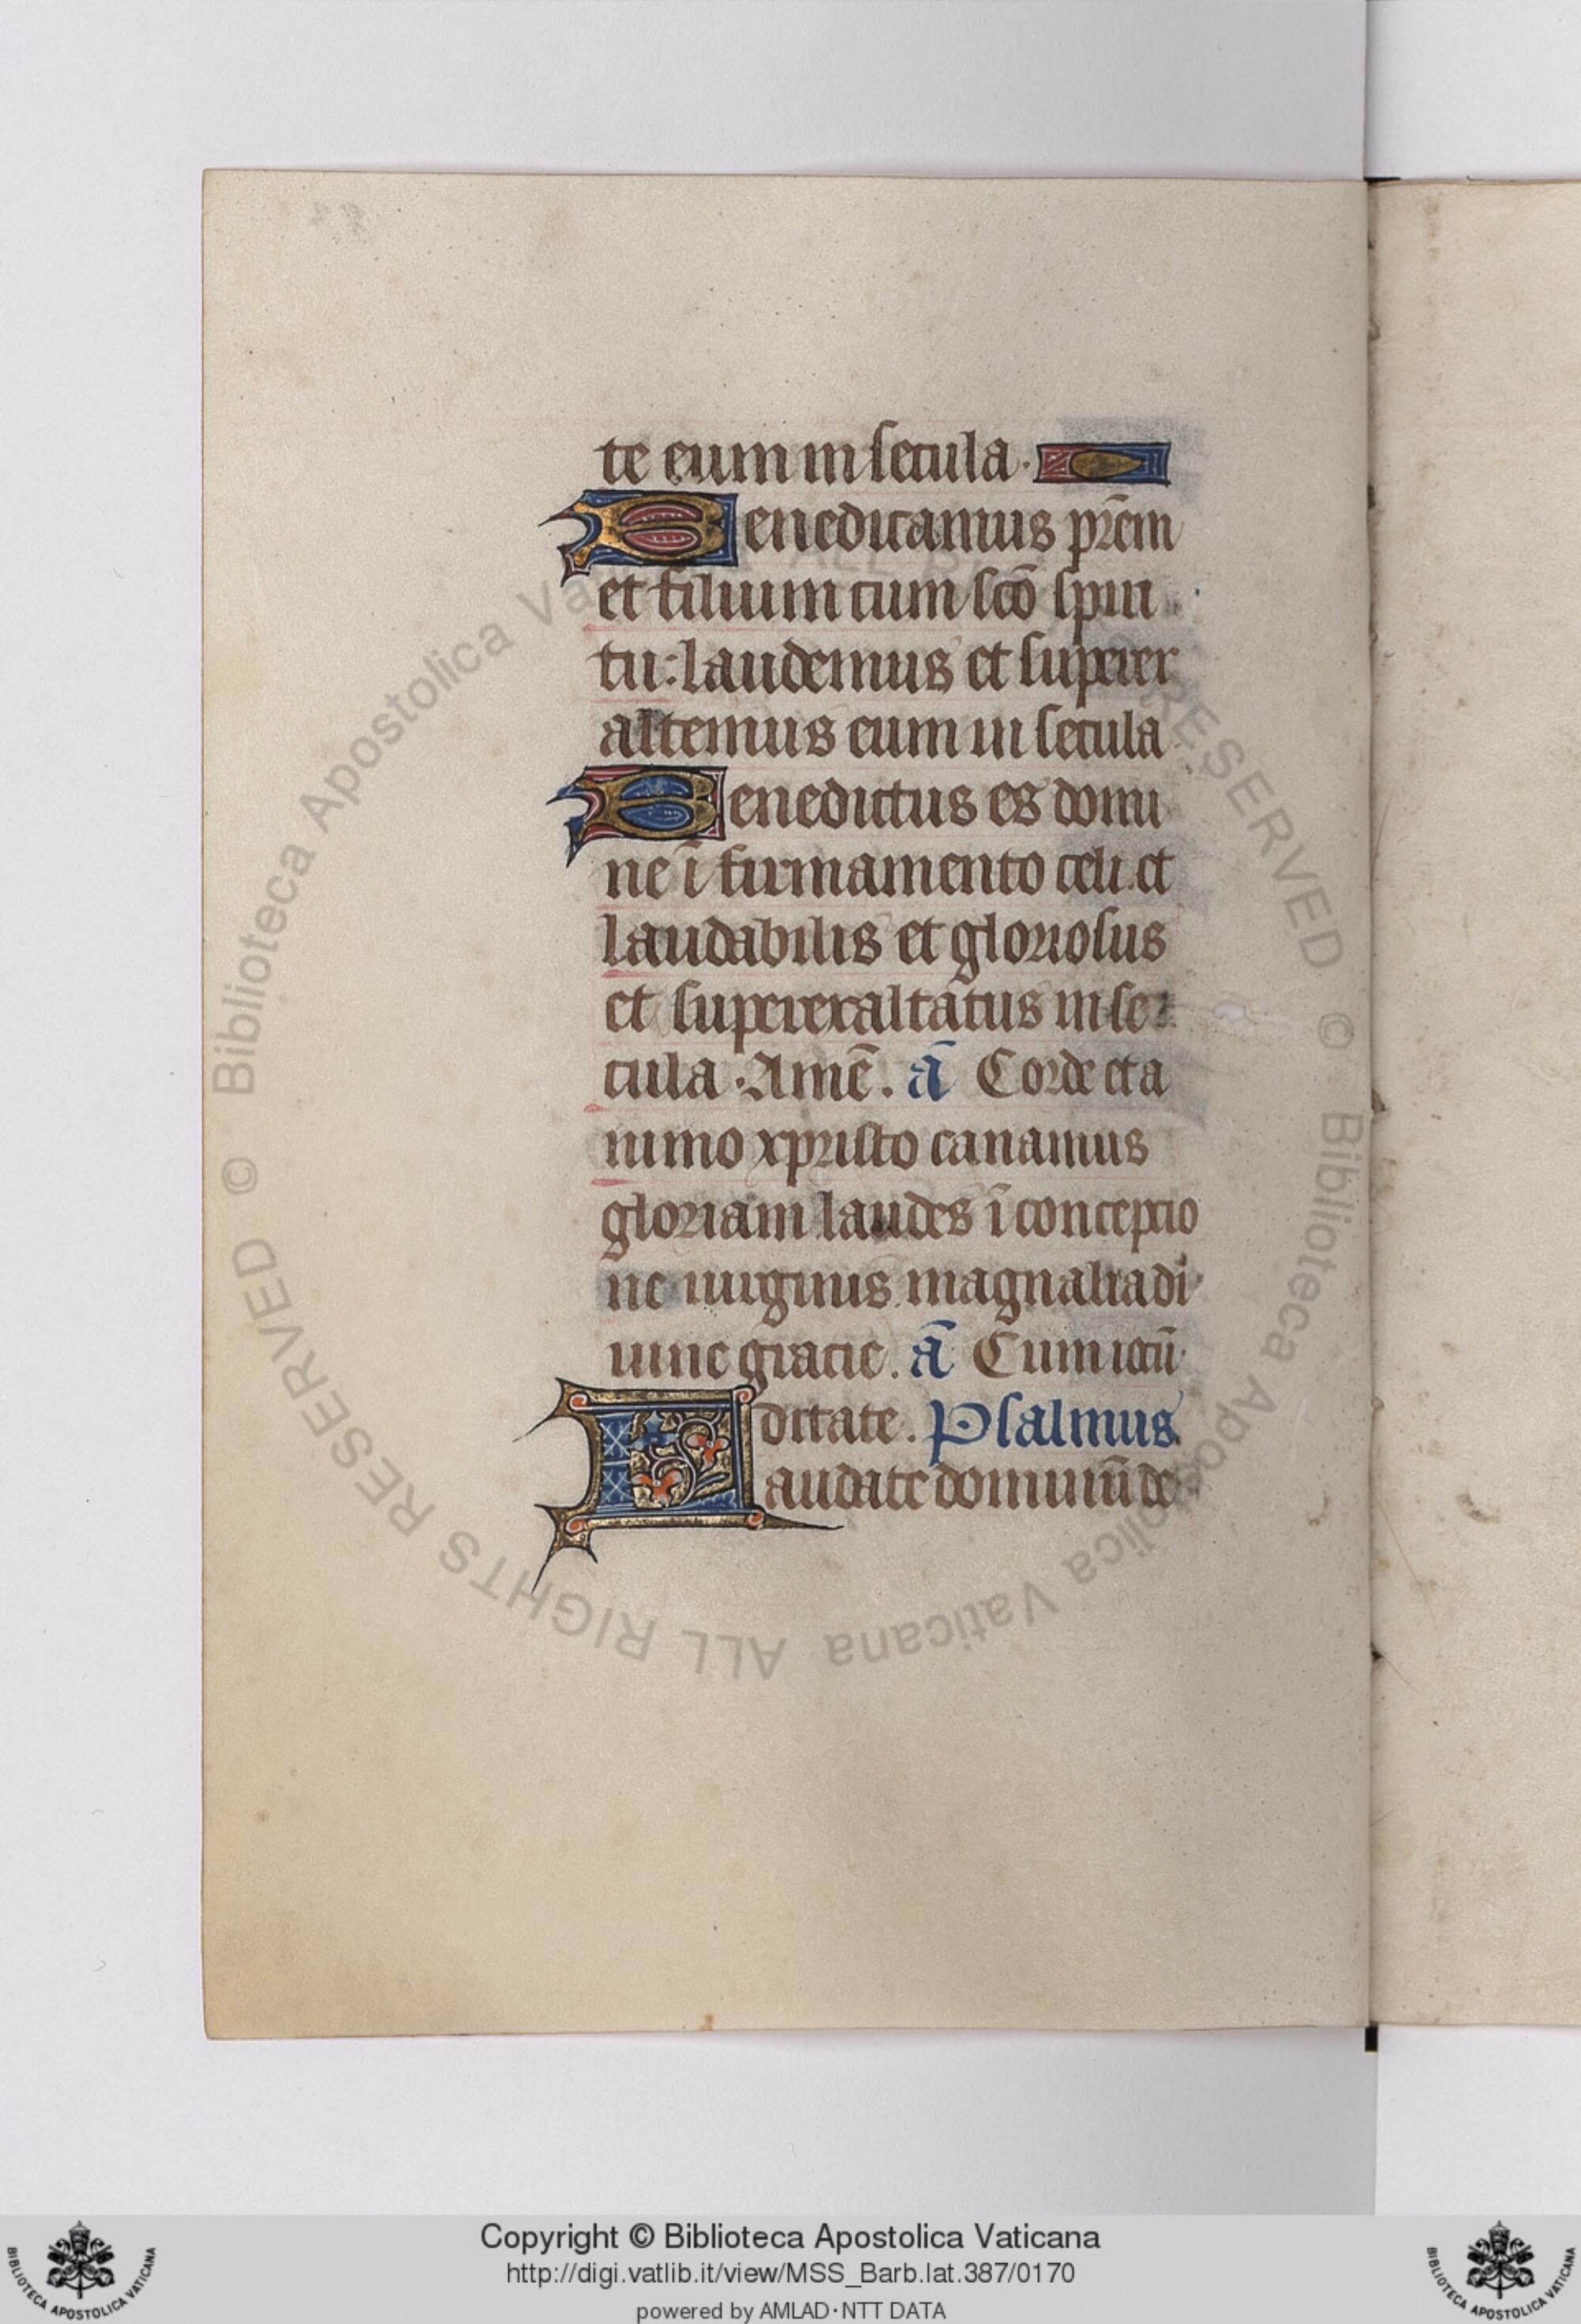 te eum in secula.
Benedicamus pr̄em
et filium cum sc̄o spiri
tu: laudemus et superex
altemus eum in secula
Benedictus es domi
ne ī firmamento celi. et
laudabilis et gloriosus
et superexaltatus in se
cula. Amē. ā Corde et a
nimo xpristo canamus
gloriam laudes ī conceptio
ne uirginis magnalia di
uine gracie. ā Cum iocū
ditate. Psalmus.
Laudate dominū de
© Biblioteca Apostolica Vaticana ALL RIGHTS RESERVED © Biblioteca Apostolica Vaticana ALL RIGHTS RESERVED
BIBLIOTECA APOSTOLICA VATICANA
Copyright © Biblioteca Apostolica Vaticana
http://digi.vatlib.it/view/MSS_Barb.lat.387/0170
powered by AMLAD·NTT DATA
BIBLIOTECA APOSTOLICA VATICANA